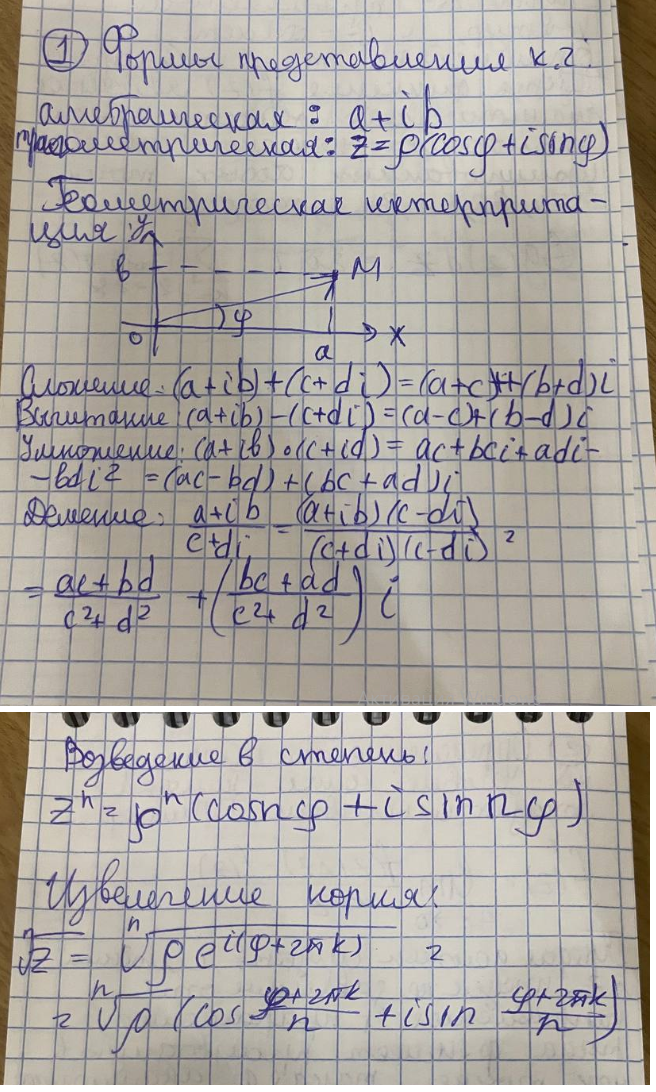 ① Формы представления к.ч.
алгебраическая: a+ib
тригонометрическая: z=ρ(cosφ+isinφ)
Геометрическая интерприта-
ция: y
в M
φ
0 a x
Сложение: (a+ib)+(c+di)=(a+c)+(b+d)i
Вычитание: (a+ib)-(c+di)=(a-c)+(b-d)i
Умножение: (a+ib)∘(c+id)=ac+bci+adi-
-bdi²=(ac-bd)+(bc+ad)i
Деление: (a+ib)/(c+di) = (a+ib)(c-di)/(c+di)(c-di) =
= (ac+bd)/(c²+d²) + ((bc+ad)/(c²+d²)) i
Возведение в степень:
zⁿ=ρⁿ(cosnφ+isin nφ)
Извлечение корня:
ⁿ√z = ⁿ√(ρe^(i(φ+2πk))) =
= ⁿ√ρ (cos (φ+2πk)/n + isin (φ+2πk)/n)